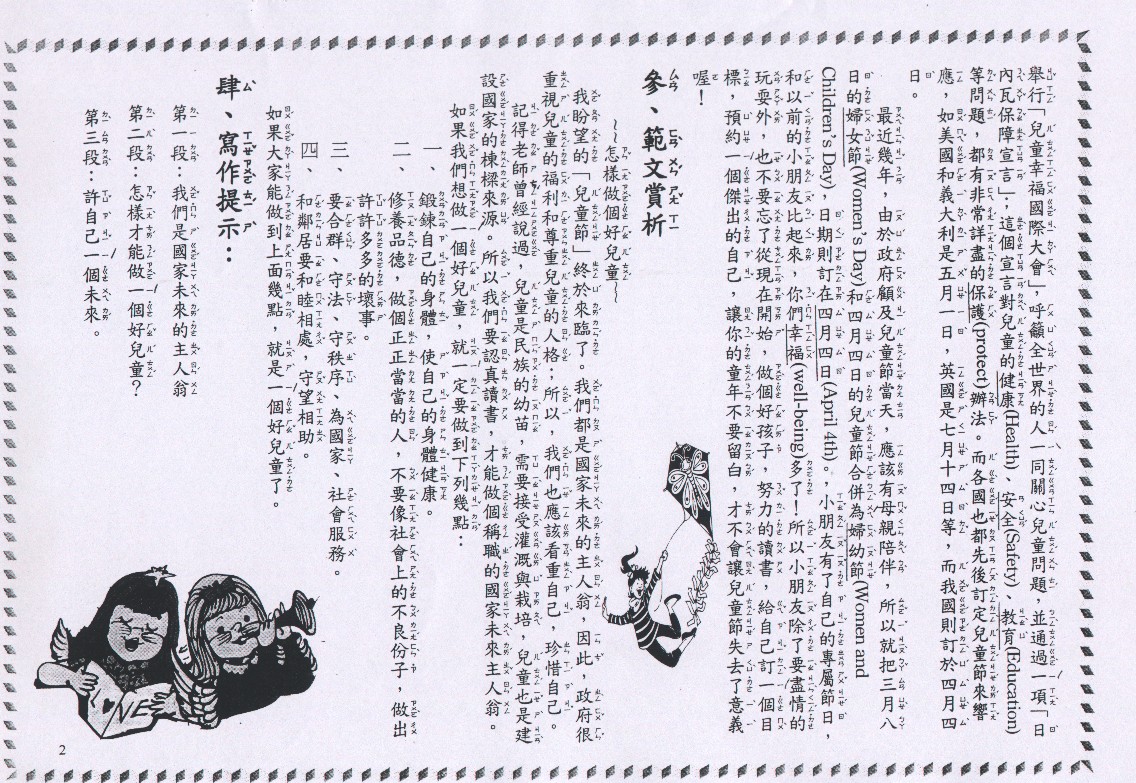 舉行「兒童幸福國際大會」，呼籲全世界的人一同關心兒童問題，並通過一項「日
內瓦保障宣言」，這個宣言對兒童的健康(Health)、安全(Safety)、教育(Education)
等問題，都有非常詳盡的保護(protect)辦法。而各國也都先後訂定兒童節來響
應，如美國和義大利是五月一日，英國是七月十四日等，而我國則訂於四月四
日。
最近幾年，由於政府顧及兒童節當天，應該有母親陪伴，所以就把三月八
日的婦女節(Women's Day)和四月四日的兒童節合併為婦幼節(Women and
Children's Day)，日期則訂在四月四日(April 4th)。小朋友有了自己的專屬節日，
和以前的小朋友比起來，你們幸福(well-being)多了！所以小朋友除了要盡情的
玩耍外，也不要忘了從現在開始，做個好孩子，努力的讀書，給自己訂一個目
標，預約一個傑出的自己，讓你的童年不要留白，才不會讓兒童節失去了意義
喔！
參、範文賞析
～怎樣做個好兒童～
我盼望的「兒童節」終於來臨了。我們都是國家未來的主人翁，因此，政府很
重視兒童的福利和尊重兒童的人格；所以，我們也應該看重自己，珍惜自己。
記得老師曾經說過，兒童是民族的幼苗，需要接受灌溉與栽培，兒童也是建
設國家的棟樑來源。所以我們要認真讀書，才能做個稱職的國家未來主人翁。
如果我們想做一個好兒童，就一定要做到下列幾點：
一、鍛鍊自己的身體，使自己的身體健康。
二、修養品德，做個正正當當的人，不要像社會上的不良份子，做出
許許多多的壞事。
三、要合群、守法、守秩序、為國家、社會服務。
四、和鄰居要和睦相處，守望相助。
如果大家能做到上面幾點，就是一個好兒童了。
肆、寫作提示：
第一段：我們是國家未來的主人翁
第二段：怎樣才能做一個好兒童？
第三段：許自己一個未來。
2